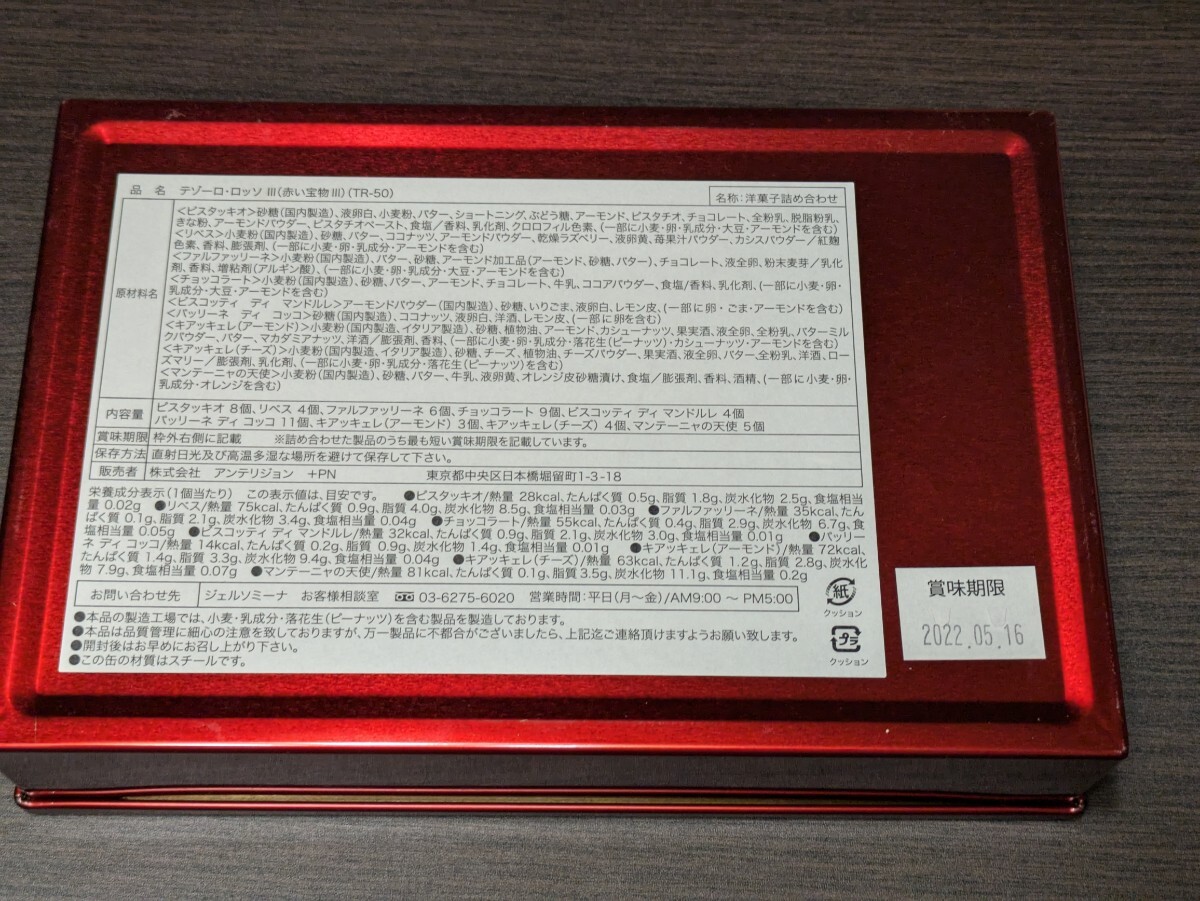 品 名 テゾーロ・ロッソ Ⅲ(赤い宝物Ⅲ)(TR-50)
名称:洋菓子詰め合わせ
原材料名
<ピスタッキオ>砂糖(国内製造)、液卵白、小麦粉、バター、ショートニング、ぶどう糖、アーモンド、ピスタチオ、チョコレート、全粉乳、脱脂粉乳、
きな粉、アーモンドパウダー、ピスタチオペースト、食塩/香料、乳化剤、クロロフィル色素、(一部に小麦・卵・乳成分・大豆・アーモンドを含む)
<リペス>小麦粉(国内製造)、砂糖、バター、ココナッツ、アーモンドパウダー、乾燥ラズベリー、液卵黄、苺果汁パウダー、カシスパウダー/紅麹
色素、香料、膨張剤、(一部に小麦・卵・乳成分・アーモンドを含む)
<ファルファッリーネ>小麦粉(国内製造)、バター、砂糖、アーモンド加工品(アーモンド、砂糖、バター)、チョコレート、液全卵、粉末麦芽/乳化
剤、香料、増粘剤(アルギン酸)、(一部に小麦・卵・乳成分・大豆・アーモンドを含む)
<チョッコラート>小麦粉(国内製造)、砂糖、バター、アーモンド、チョコレート、牛乳、ココアパウダー、食塩/香料、乳化剤、(一部に小麦・卵・
乳成分・大豆・アーモンドを含む)
<ビスコッティ ディ マンドルレ>アーモンドパウダー(国内製造)、砂糖、いりごま、液卵白、レモン皮、(一部に卵・ごま・アーモンドを含む)
<パッリーネ ディ コッコ>砂糖(国内製造)、ココナッツ、液卵白、洋酒、レモン皮、(一部に卵を含む)
<キアッキェレ(アーモンド)>小麦粉(国内製造、イタリア製造)、砂糖、植物油、アーモンド、カシューナッツ、果実酒、液全卵、全粉乳、バターミル
クパウダー、バター、マカダミアナッツ、洋酒/膨張剤、香料、(一部に小麦・卵・乳成分・落花生(ピーナッツ)・カシューナッツ・アーモンドを含む)
<キアッキェレ(チーズ)>小麦粉(国内製造、イタリア製造)、砂糖、チーズ、植物油、チーズパウダー、果実酒、液全卵、バター、全粉乳、洋酒、ロー
ズマリー/膨張剤、乳化剤、(一部に小麦・卵・乳成分・落花生(ピーナッツ)を含む)
<マンテーニャの天使>小麦粉(国内製造)、砂糖、バター、牛乳、液卵黄、オレンジ皮砂糖漬け、食塩/膨張剤、香料、酒精、(一部に小麦・卵・
乳成分・オレンジを含む)
内容量
ピスタッキオ 8個、リペス 4個、ファルファッリーネ 6個、チョッコラート 9個、ビスコッティ ディ マンドルレ 4個
パッリーネ ディ コッコ 11個、キアッキェレ(アーモンド) 3個、キアッキェレ(チーズ) 4個、マンテーニャの天使 5個
賞味期限 枠外右側に記載 ※詰め合わせた製品のうち最も短い賞味期限を記載しています。
保存方法 直射日光及び高温多湿な場所を避けて保存して下さい。
販売者 株式会社 アンテリジョン +PN 東京都中央区日本橋堀留町1-3-18
栄養成分表示(1個当たり) この表示値は、目安です。 ●ピスタッキオ/熱量 28kcal、たんぱく質 0.5g、脂質 1.8g、炭水化物 2.5g、食塩相当
量 0.02g ●リペス/熱量 75kcal、たんぱく質 0.9g、脂質 4.0g、炭水化物 8.5g、食塩相当量 0.03g ●ファルファッリーネ/熱量 35kcal、たん
ぱく質 0.1g、脂質 2.1g、炭水化物 3.4g、食塩相当量 0.04g ●チョッコラート/熱量 55kcal、たんぱく質 0.4g、脂質 2.9g、炭水化物 6.7g、食
塩相当量 0.05g ●ビスコッティ ディ マンドルレ/熱量 32kcal、たんぱく質 0.9g、脂質 2.1g、炭水化物 3.0g、食塩相当量 0.01g ●パッリー
ネ ディ コッコ/熱量 14kcal、たんぱく質 0.2g、脂質 0.9g、炭水化物 1.4g、食塩相当量 0.01g ●キアッキェレ(アーモンド)/熱量 72kcal、
たんぱく質 1.4g、脂質 3.3g、炭水化物 9.4g、食塩相当量 0.04g ●キアッキェレ(チーズ)/熱量 63kcal、たんぱく質 1.2g、脂質 2.8g、炭水化
物 7.9g、食塩相当量 0.07g ●マンテーニャの天使/熱量 81kcal、たんぱく質 0.1g、脂質 3.5g、炭水化物 11.1g、食塩相当量 0.2g
お問い合わせ先 ジェルソミーナ お客様相談室 03-6275-6020 営業時間:平日(月〜金)/AM9:00 〜 PM5:00
●本品の製造工場では、小麦・乳成分・落花生(ピーナッツ)を含む製品を製造しております。
●本品は品質管理に細心の注意を致しておりますが、万一製品に不都合がございましたら、上記迄ご連絡頂けますようお願い致します。
●開封後はお早めにお召し上がり下さい。
●この缶の材質はスチールです。
紙
クッション
プラ
クッション
賞味期限
2022.05.16